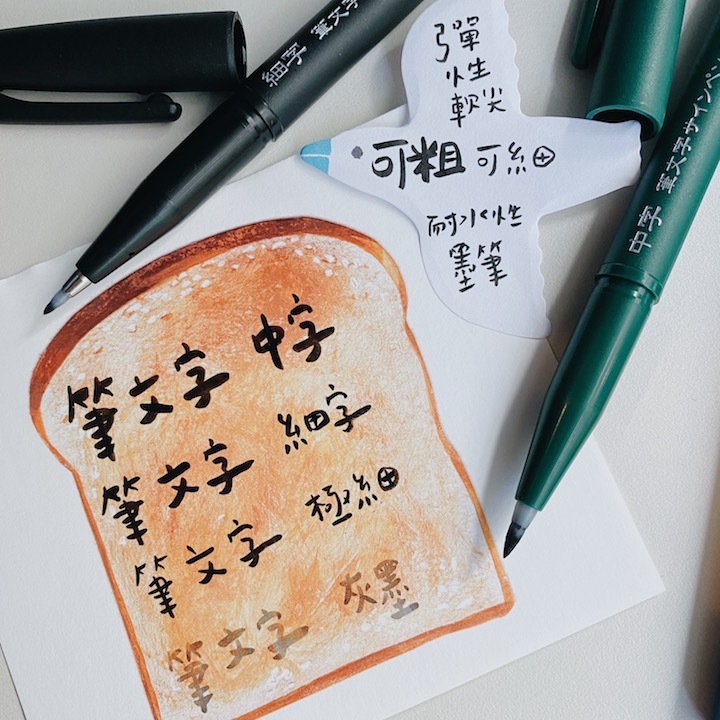 細字 筆文字
中字 筆文字サインペン
彈
性
軟尖
可粗可細
耐水性
墨筆
筆文字 中字
筆文字 細字
筆文字 極細
筆文字 灰墨